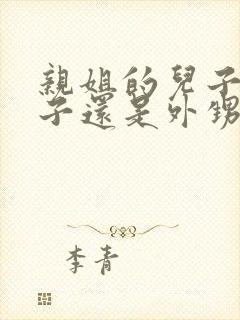 親姐的兒子
子還是外甥
李青